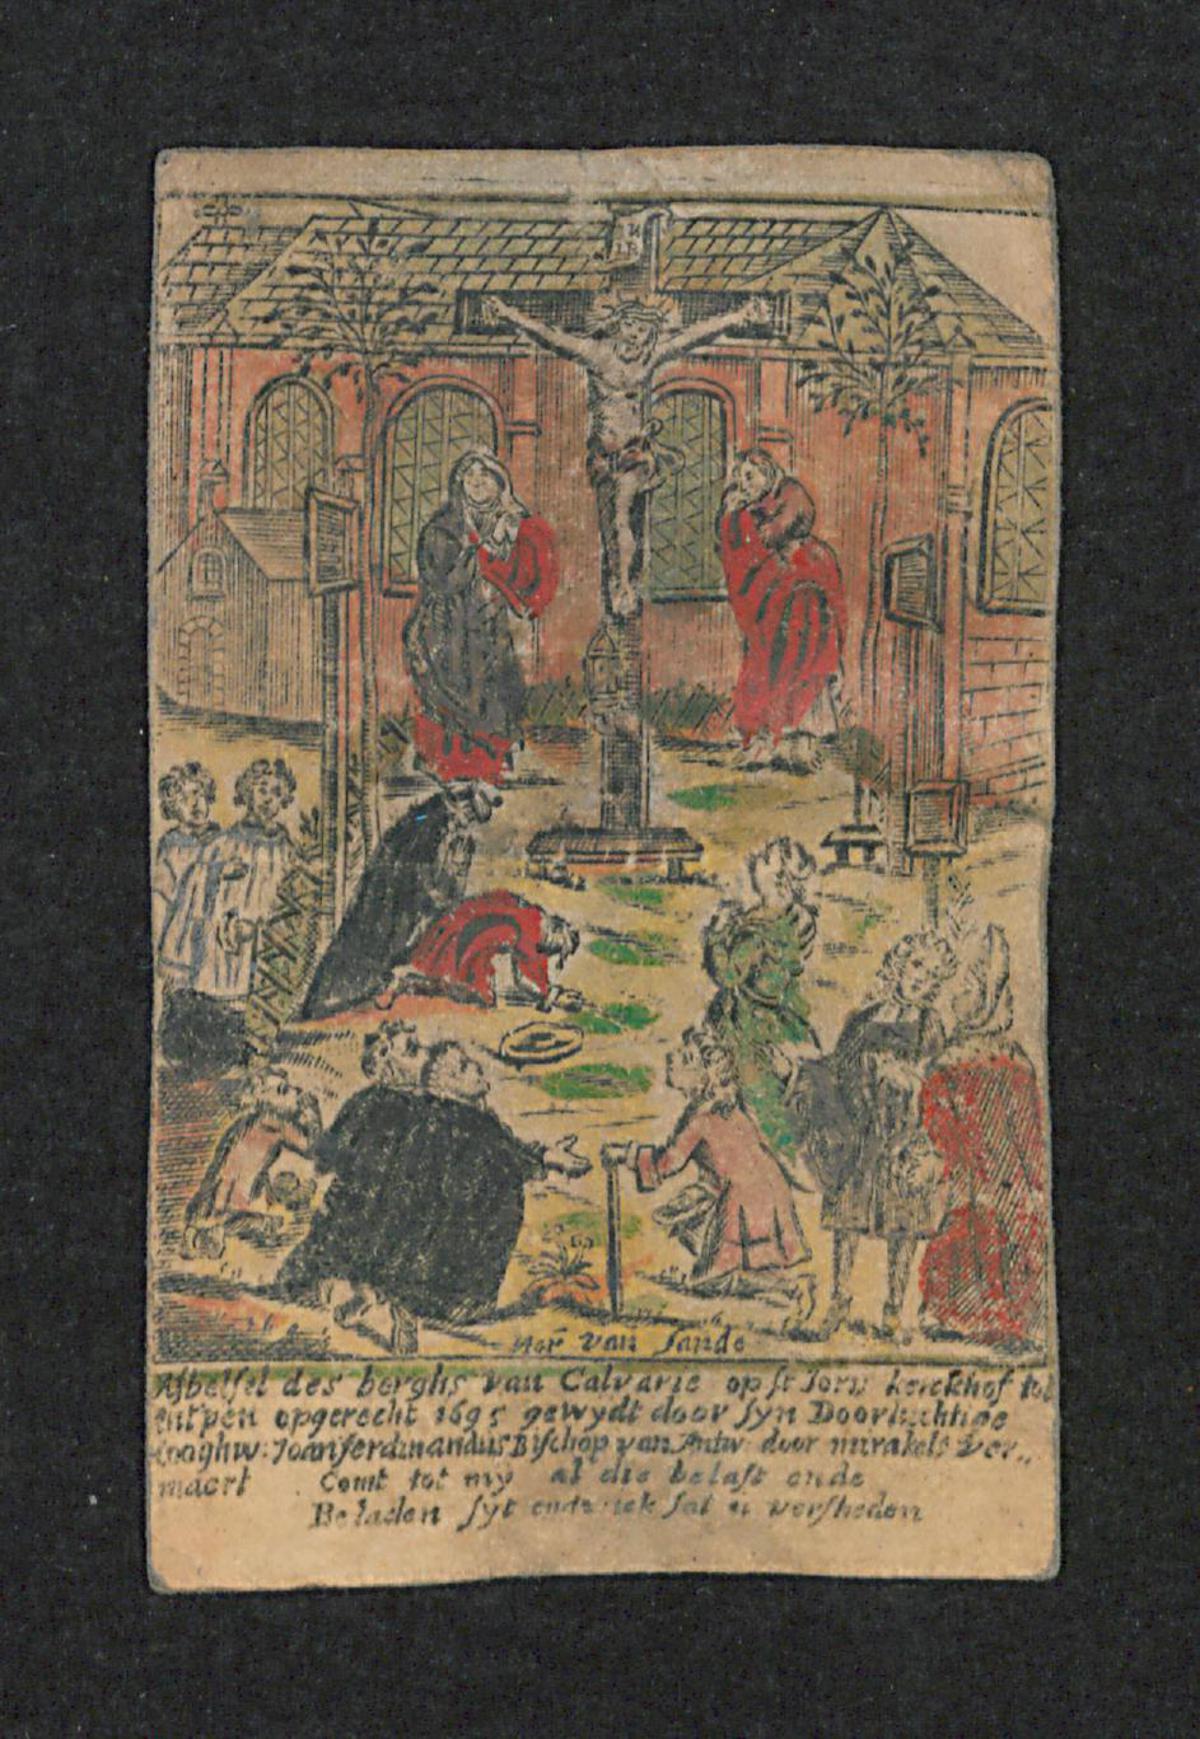 IN
IR
van sande
Afbelsel des berghs van Calvarie op st Joris kerckhof tot
opgerecht 1695 gewydt door syn Doorluchtige
hooghw: Joan ferdinandus Bischop van Antw door mirakels ver„
maert Comt tot my al die belast ende
Beladen syt ende ick sal u